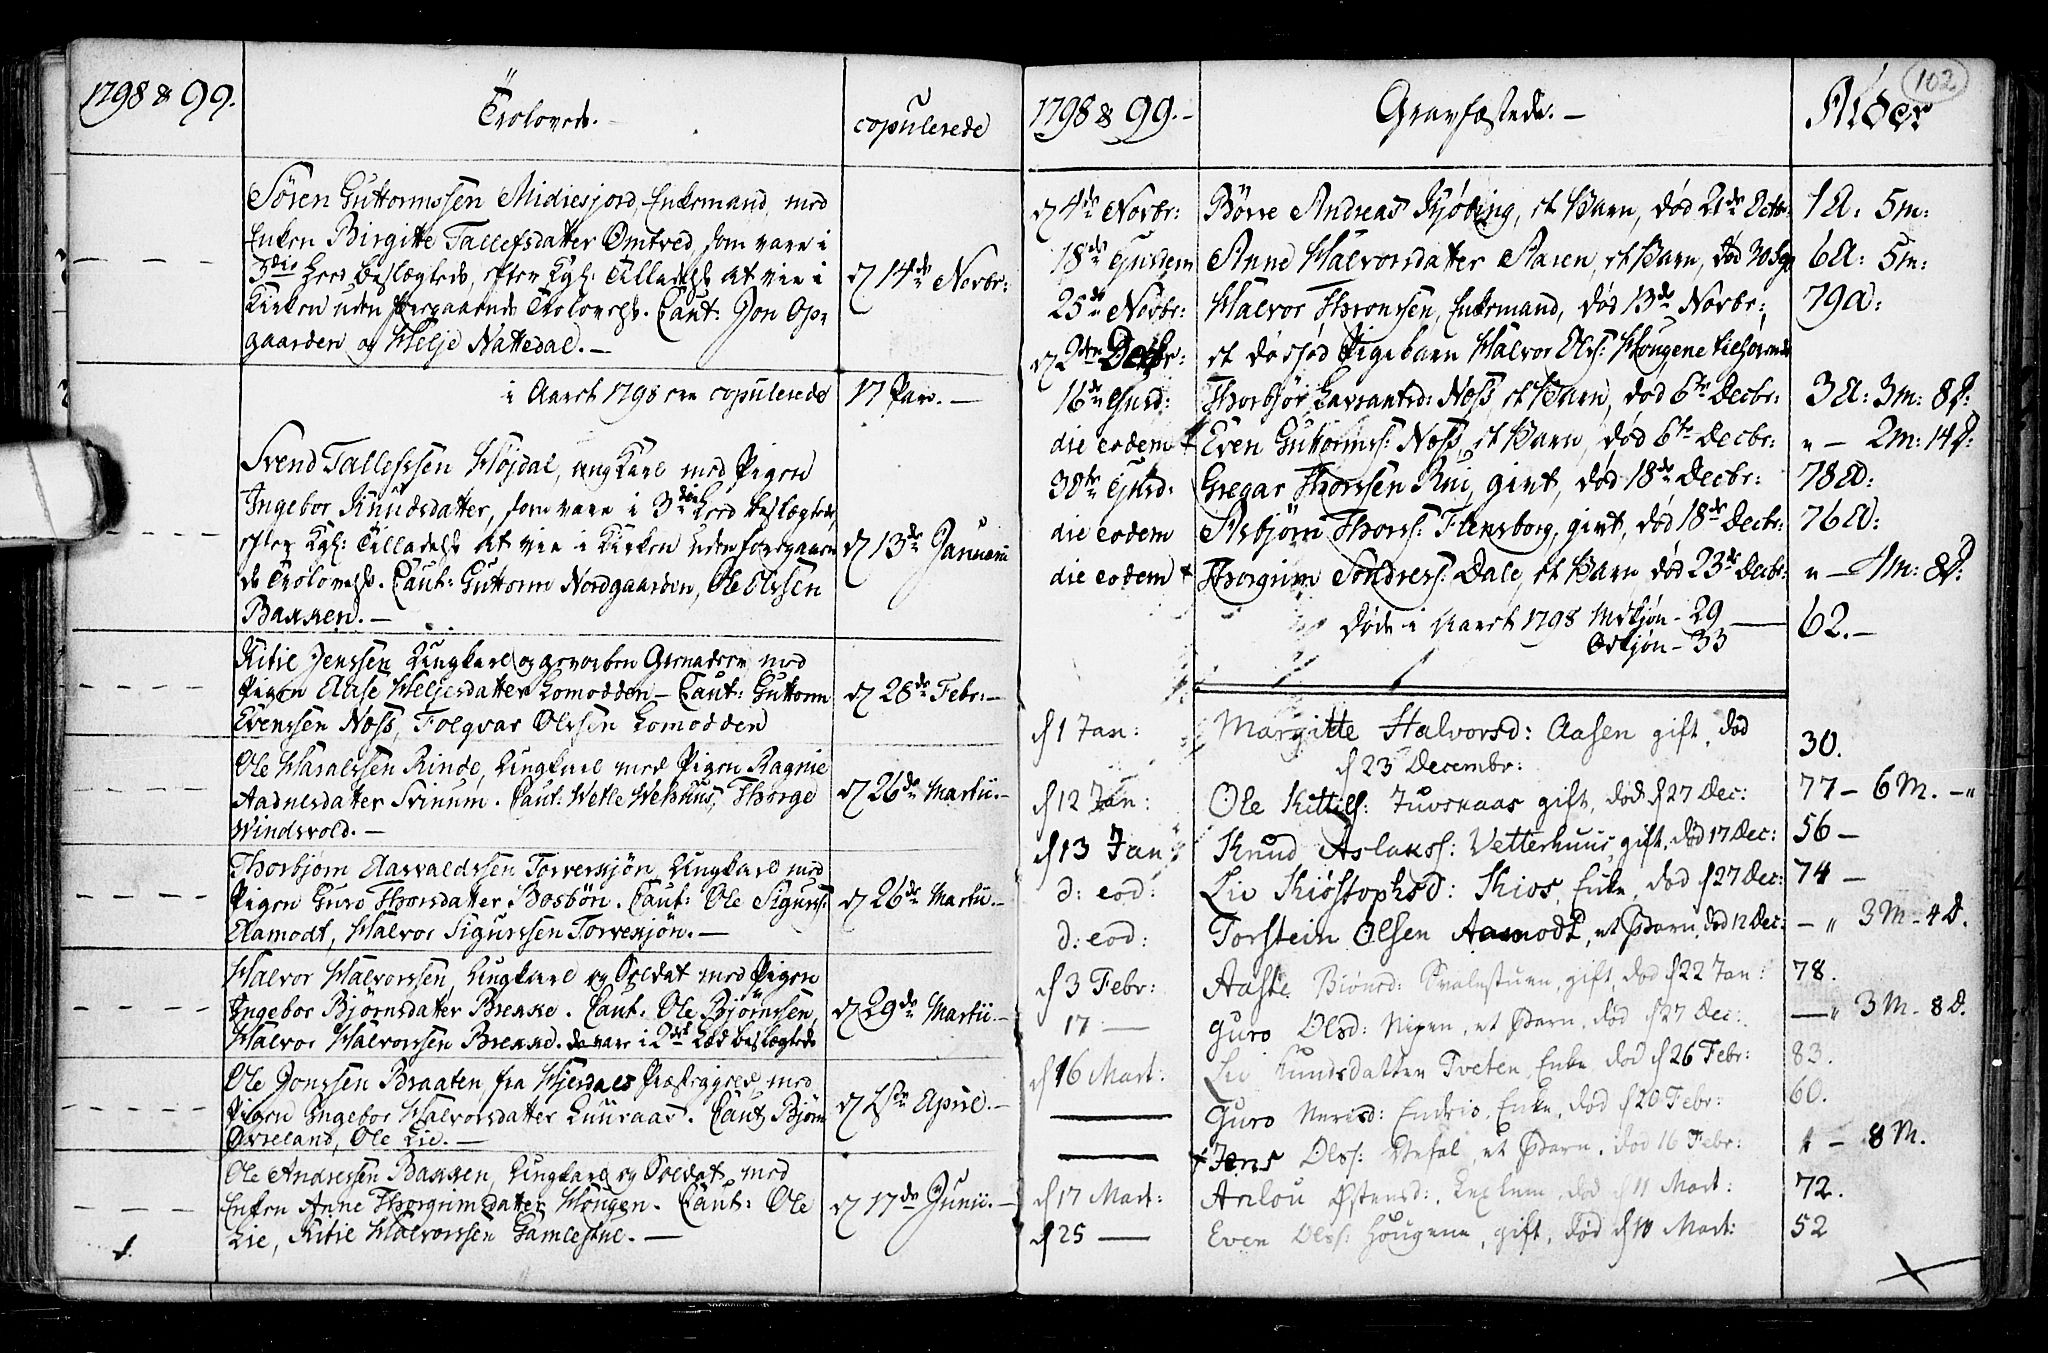 1798 & 99.
Trolovede.
copulerede
Sören Guttormssen Midiesjord, Enkemand, med
Enken Birgitte Tallefsdatter Omtved, som vare i
3die Leed beslægtede, efter Kgl: Tilladelse at vie i
Kirken uden foregaaende Trolovelse. Caut: Jon Op-
gaarden og Helje Nattedal.
d 14de Novbr:
i Aaret 1798 ere copulerede
17 Par.
Svend Tallefssen Højdal, ung Karl med Pigen
Ingebor Knudsdatter, som vare i 3die Leed beslægtede,
efter Kgl: Tilladelse at vie i Kirken uden foregaaen-
de Trolovelse. Caut: Guttorm Nordgaarden, Ole Olssen
Bakken.
d 13de Januarii
Kitil Jenssen Ungkarl og geworben Grenadeer med
Pigen Aase Heljesdatter Lomodden - Caut: Guttorm
Evenssen Næss, Folqvar Olssen Lomodden
d 28de Febr:
Ole Haraldssen Rinde, Ungkarl med Pigen Ragnie
Aadnesdatter Svinum. Caut: Vetle Vehuus, Thorge
Windsvold.
d 26de Martii.
Thorbjørn Aasvaldssen Torvekjön, Ungkarl med
Pigen Guro Thorsdatter Bosbön. Caut: Ole Sigurss:
Aamodt, Halvor Sigurssen Torvekjön.
d 26de Martii.
Halvor Halvorssen, Ungkarl og Soldat med Pigen
Ingebor Bjørnsdatter Brekke. Caut: Ole Bjørnssen,
Halvor Halvorssen Brekke. de vare i 2det Led beslægtede
d 29de Martii.
Ole Jonssen Braaten fra Hjerdals Præstegjeld med
Pigen Ingebor Halvorsdatter Luuraas. Caut: Bjørn
Øvreland, Ole Lie.
April.
Ole Andressen Bakken, Ungkarl og Soldat med
Enken Anne Thorgrimsdatter Hougen. Caut: Ole
Lie, Kitil Halvorssen Gamlestue.
d 17de Junii.
102
1798 & 99.
Gravfæstede.
Alder
d 4de Novbr: Börre Andreas Kjöbing, et Barn, død 21de Octb: 1 A: 5 m:
18de Ejusdem Anne Halvorsdatter Aasen, et Barn, død 30 Sep 6 A: 5 m:
25de Novbr: Halvor Thronssen, Enkemand, død 13de Novbr: 79 A:
d 2den Decbr: et dødfød Pigebarn Halvor Olss: Hougene tilhørende
16de Ejusd: Thorbjør Gavrantsd: Næss et Barn, død 6te Decbr: 3 A: 3 m: 8 D:
die eodem + Even Guttormss: Næss, et Barn, død 6te Decbr: " - 2 m: 14 D:
30te Ejusd: Gregar Thorssen Rui, givt, død 18de Decbr: 78 A:
die eodem Asbjørn Thorss: Flensborg, givt, død 18de Decbr: 76 A:
die eodem + Thorgrim Sondress: Dale, et Barn død 23de Decbr: " - 4 m: 8 D:
Døde i Aaret 1798 Mdkjøn - 29
Qvkjøn - 33
62.
d 1 Jan: Margitte Halvorsd: Aasen gift, død
d 23 Decembr: 30.
d 12 Jan: Ole Kittilss: Juvskaas gift, død d 27 Dec: 77 - 6 M. - "
d 13 Jan: Knud Aslakss: Vetterhuus gift, død 17 Dec: 56 -
d: eod: Liv Kiöstophsd: Kios, Enke, død d 27 Dec: 74 -
d: eod: Torstein Olsen Aamodt, et Barn, død 12 Dec: - " 3 M - 4 D.
d 3 Febr: Aaste Biönsd: Svalestuen, gift, død d 22 Jan: 78.
17 - Guro Olsd: Nigen, et Barn, død d 27 Dec: - " 3 M - 8 D.
d 16 Mart: Liv Knudsdatter Tveten, Enke død d 26 Febr: 83.
Guro Nerisd: Endrio, Enke, død d 20 Febr: 60.
+ Jens Olss: Uefal, et Barn, død 16 Febr: 1 - 8 M.
d 17 Mart: Østensd: død d 11 Mart: 72.
d 25 - Even Olss: Hougene, gift, død d 10 Mart: 52